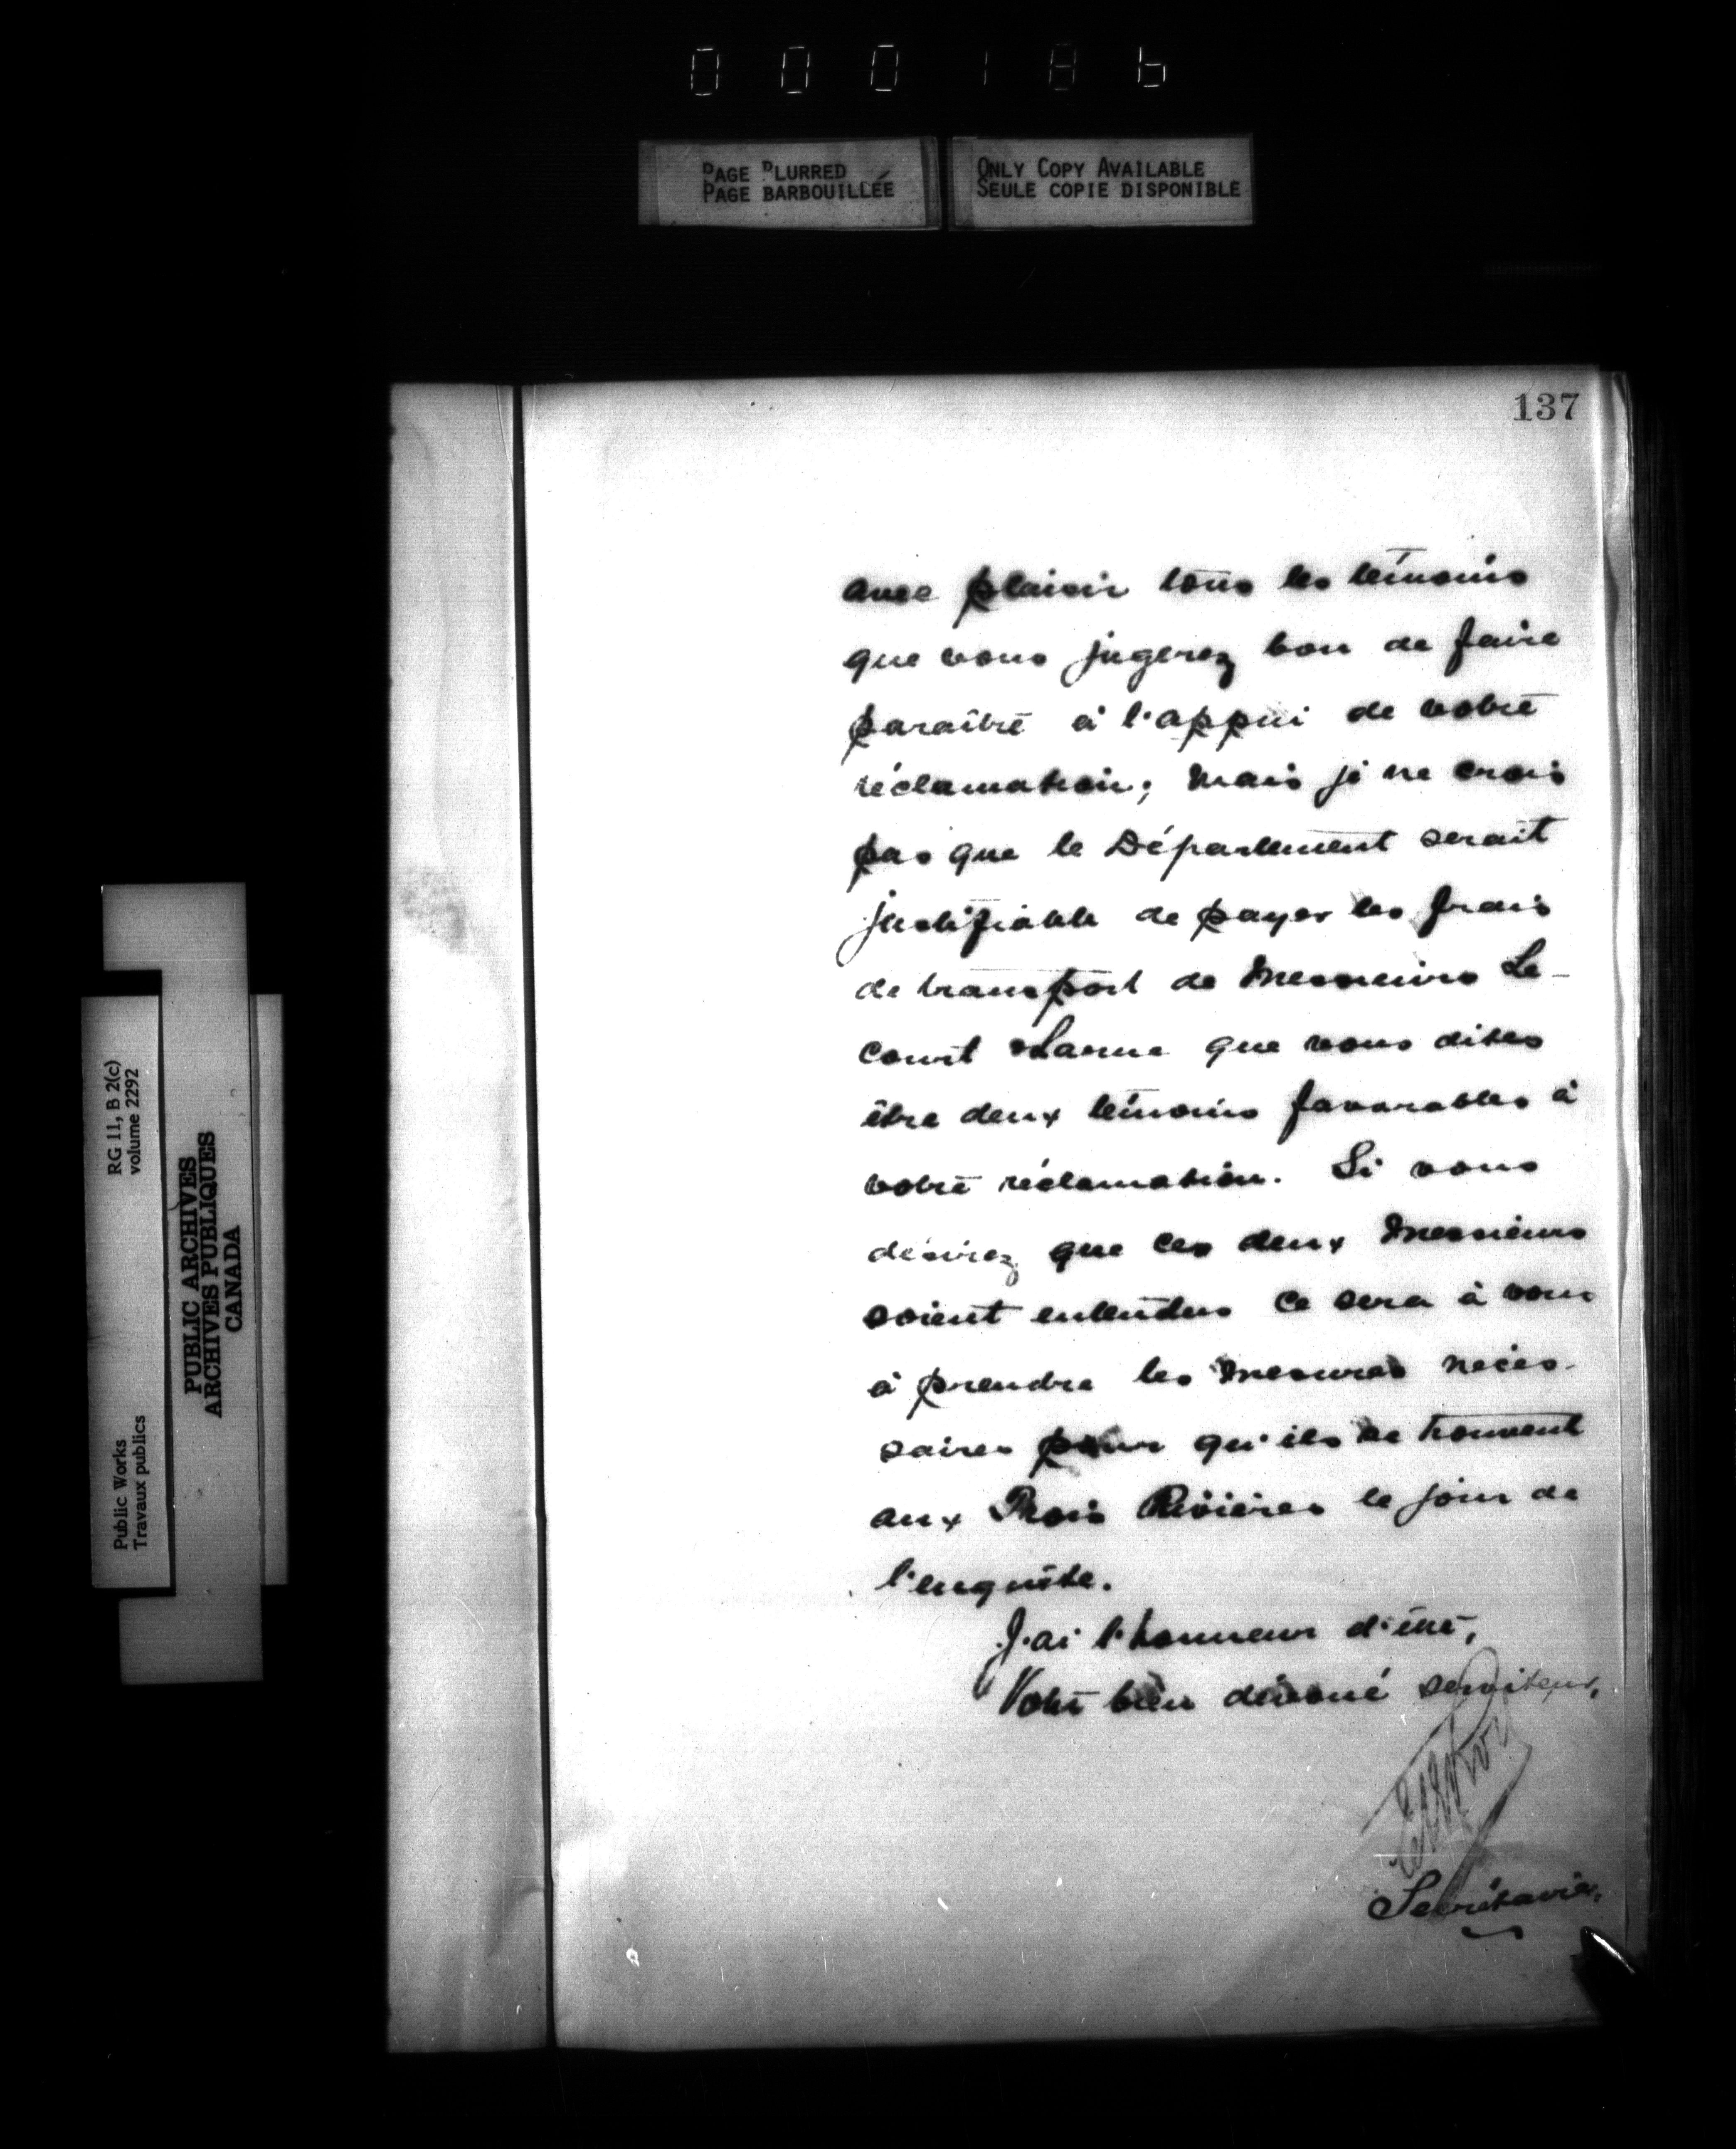 000186
PAGE BLURRED
PAGE BARBOUILLÉE
ONLY COPY AVAILABLE
SEULE COPIE DISPONIBLE
137
avec plaisir tous les témoins
que vous jugerez bon de faire
paraître à l'appui de votre
réclamation; mais je ne crois
pas que le Département serait
justifiable de payer les frais
de transport de Messieurs Le-
court & que vous dites
être deux témoins favorables à
votre réclamation. Si vous
désirez que ces deux Messieurs
soient entendus ce sera à vous
à prendre les mesures néces-
saires pour qu'ils se trouvent
aux Trois Rivières le jour de
l'enquête.
J'ai l'honneur d'être,
Votre bien dévoué serviteur,
Secrétaire.
RG 11, B 2(c)
volume 2292
PUBLIC ARCHIVES
ARCHIVES PUBLIQUES
CANADA
Public Works
Travaux publics